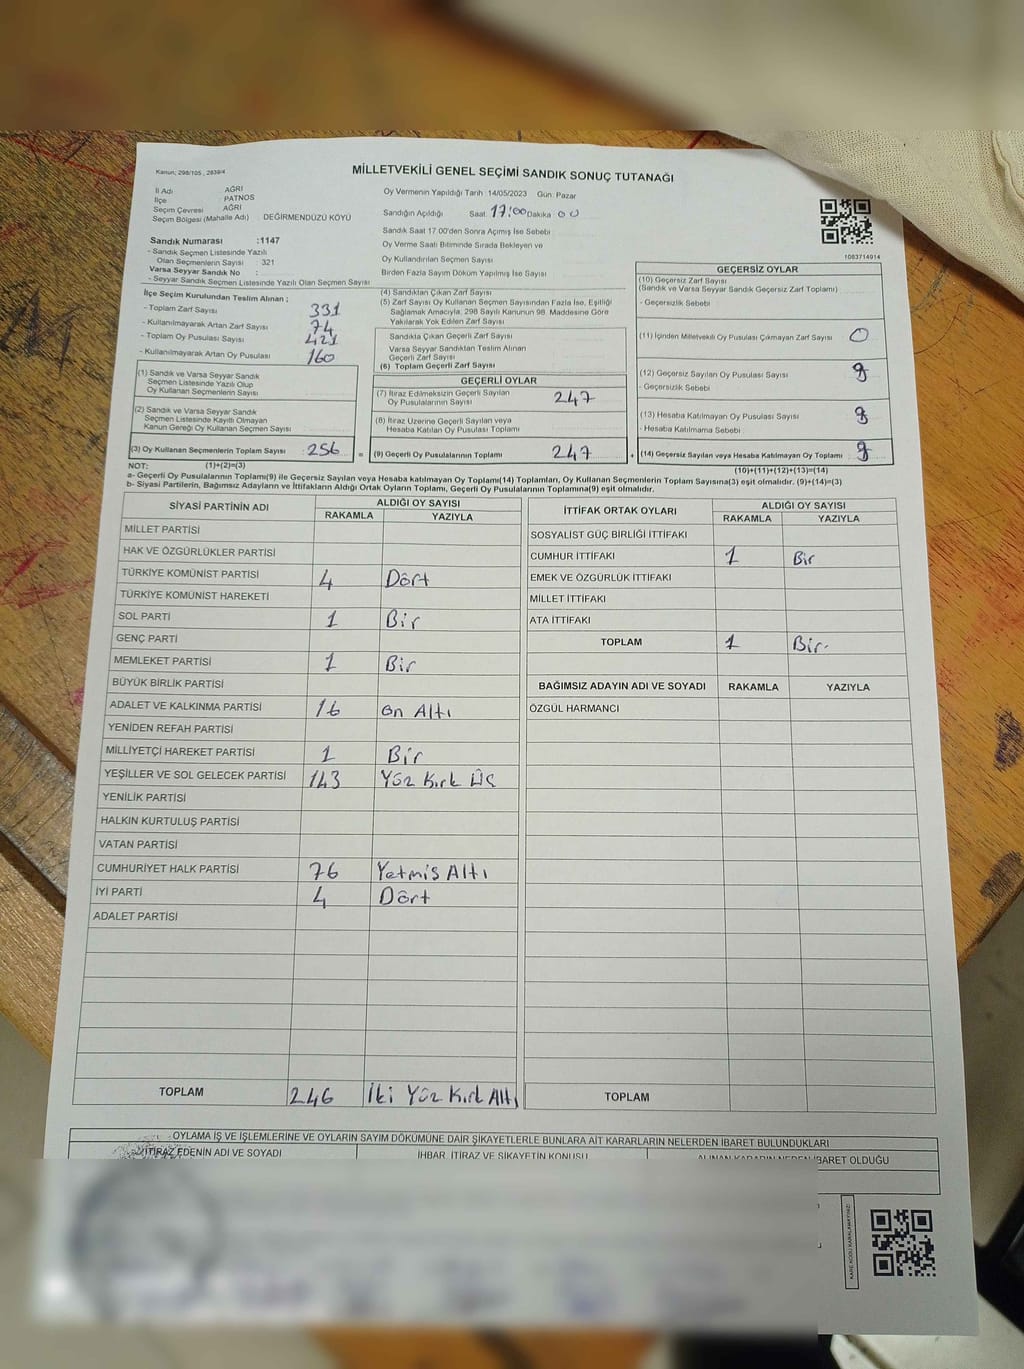 Kanun; 298/105 , 2839/4
MİLLETVEKİLİ GENEL SEÇİMİ SANDIK SONUÇ TUTANAĞI
İl Adı AĞRI
İlçe PATNOS
Seçim Çevresi AĞRI
Seçim Bölgesi (Mahalle Adı) : DEĞİRMENDÜZÜ KÖYÜ
Oy Vermenin Yapıldığı Tarih :14/05/2023 Gün: Pazar
Sandığın Açıldığı Saat: 17:00 Dakika 00
Sandık Saat 17.00'den Sonra Açılmış İse Sebebi
Oy Verme Saati Bitiminde Sırada Bekleyen ve
Oy Kullandırılan Seçmen Sayısı
Birden Fazla Sayım Döküm Yapılmış İse Sayısı
1083714914
Sandık Numarası :1147
- Sandık Seçmen Listesinde Yazılı
Olan Seçmenlerin Sayısı : 321
Varsa Seyyar Sandık No :
- Seyyar Sandık Seçmen Listesinde Yazılı Olan Seçmen Sayısı
İlçe Seçim Kurulundan Teslim Alınan ;
- Toplam Zarf Sayısı 331
- Kullanılmayarak Artan Zarf Sayısı 74
- Toplam Oy Pusulası Sayısı 421
- Kullanılmayarak Artan Oy Pusulası 160
(1) Sandık ve Varsa Seyyar Sandık
Seçmen Listesinde Yazılı Olup
Oy Kullanan Seçmenlerin Sayısı
(2) Sandık ve Varsa Seyyar Sandık
Seçmen Listesinde Kayıtlı Olmayan
Kanun Gereği Oy Kullanan Seçmen Sayısı
(3) Oy Kullanan Seçmenlerin Toplam Sayısı 256
(1)+(2)=(3)
(4) Sandıktan Çıkan Zarf Sayısı
(5) Zarf Sayısı Oy Kullanan Seçmen Sayısından Fazla İse, Eşitliği
Sağlamak Amacıyla; 298 Sayılı Kanunun 98. Maddesine Göre
Yakılarak Yok Edilen Zarf Sayısı
Sandıkta Çıkan Geçerli Zarf Sayısı
Varsa Seyyar Sandıktan Teslim Alınan
Geçerli Zarf Sayısı
(6) Toplam Geçerli Zarf Sayısı
GEÇERLİ OYLAR
(7) İtiraz Edilmeksizin Geçerli Sayılan
Oy Pusulalarının Sayısı 247
(8) İtiraz Üzerine Geçerli Sayılan veya
Hesaba Katılan Oy Pusulası Toplamı
= (9) Geçerli Oy Pusulalarının Toplamı 247 +
GEÇERSİZ OYLAR
(10) Geçersiz Zarf Sayısı
(Sandık ve Varsa Seyyar Sandık Geçersiz Zarf Toplamı)
- Geçersizlik Sebebi
(11) İçinden Milletvekili Oy Pusulası Çıkmayan Zarf Sayısı 0
(12) Geçersiz Sayılan Oy Pusulası Sayısı
- Geçersizlik Sebebi
(13) Hesaba Katılmayan Oy Pusulası Sayısı
- Hesaba Katılmama Sebebi
(14) Geçersiz Sayılan veya Hesaba Katılmayan Oy Toplamı
(10)+(11)+(12)+(13)=(14)
NOT:
a- Geçerli Oy Pusulalarının Toplamı(9) ile Geçersiz Sayılan veya Hesaba Katılmayan Oy Pusulası Toplamı(14) Toplamları, Oy Kullanan Seçmenlerin Toplam Sayısına(3) eşit olmalıdır. (9)+(14)=(3)
b- Siyasi Partilerin, Bağımsız Adayların ve İttifakların Aldığı Ortak Oyların Toplamı, Geçerli Oy Pusulalarının Toplamına(9) eşit olmalıdır.
SİYASİ PARTİNİN ADI ALDIĞI OY SAYISI
RAKAMLA YAZIYLA
MİLLET PARTİSİ
HAK VE ÖZGÜRLÜKLER PARTİSİ
TÜRKİYE KOMÜNİST PARTİSİ 4 Dört
TÜRKİYE KOMÜNİST HAREKETİ
SOL PARTİ 1 Bir
GENÇ PARTİ
MEMLEKET PARTİSİ 1 Bir
BÜYÜK BİRLİK PARTİSİ
ADALET VE KALKINMA PARTİSİ 16 on Altı
YENİDEN REFAH PARTİSİ
MİLLİYETÇİ HAREKET PARTİSİ 1 Bir
YEŞİLLER VE SOL GELECEK PARTİSİ 143 Yüz Kırk Üç
YENİLİK PARTİSİ
HALKIN KURTULUŞ PARTİSİ
VATAN PARTİSİ
CUMHURİYET HALK PARTİSİ 76 Yetmiş Altı
İYİ PARTİ 4 Dört
ADALET PARTİSİ
TOPLAM 246 İki Yüz Kırk Altı
İTTİFAK ORTAK OYLARI ALDIĞI OY SAYISI
RAKAMLA YAZIYLA
SOSYALİST GÜÇ BİRLİĞİ İTTİFAKI
CUMHUR İTTİFAKI 1 Bir
EMEK VE ÖZGÜRLÜK İTTİFAKI
MİLLET İTTİFAKI
ATA İTTİFAKI
TOPLAM 1 Bir.
BAĞIMSIZ ADAYIN ADI VE SOYADI RAKAMLA YAZIYLA
ÖZGÜL HARMANCI
TOPLAM
OYLAMA İŞ VE İŞLEMLERİNE VE OYLARIN SAYIM DÖKÜMÜNE DAİR ŞİKAYETLERLE BUNLARA AİT KARARLARIN NELERDEN İBARET BULUNDUKLARI
İTİRAZ EDENİN ADI VE SOYADI İHBAR, İTİRAZ VE ŞİKAYETİN KONUSU ALINAN KARARIN NEDEN İBARET OLDUĞU
KARE KODU KARALAMAYINIZ!